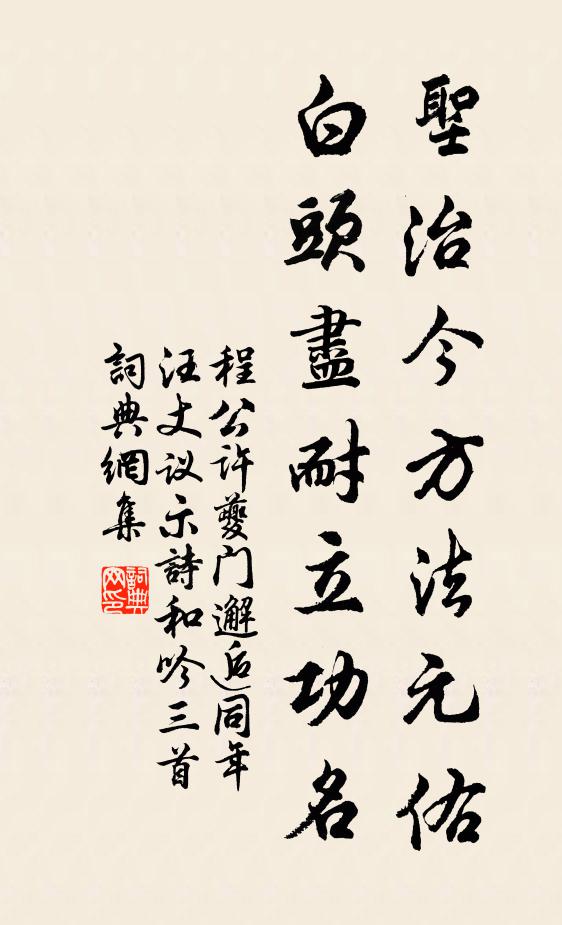 聖治今方法元佑
白頭盡耐立功名
程公許夔门邂逅同年
汪丈议示詩和吟三首
詞典網集
詞典网印